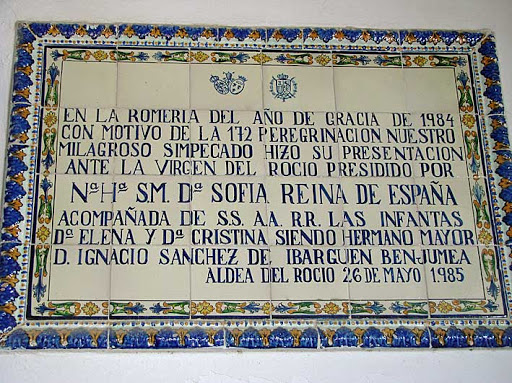 EN LA ROMERIA DEL AÑO DE GRACIA DE 1984
CON MOTIVO DE LA 172 PEREGRINACION NUESTRO
MILAGROSO SIMPECADO HIZO SU PRESENTACION
ANTE LA VIRGEN DEL ROCIO PRESIDIDO POR
Nª Hª S.M. Dª SOFIA REINA DE ESPAÑA
ACOMPAÑADA DE SS. AA. RR. LAS INFANTAS
Dª ELENA Y Dª CRISTINA SIENDO HERMANO MAYOR
D. IGNACIO SANCHEZ DE IBARGUEN BENJUMEA
ALDEA DEL ROCIO 26 DE MAYO 1985